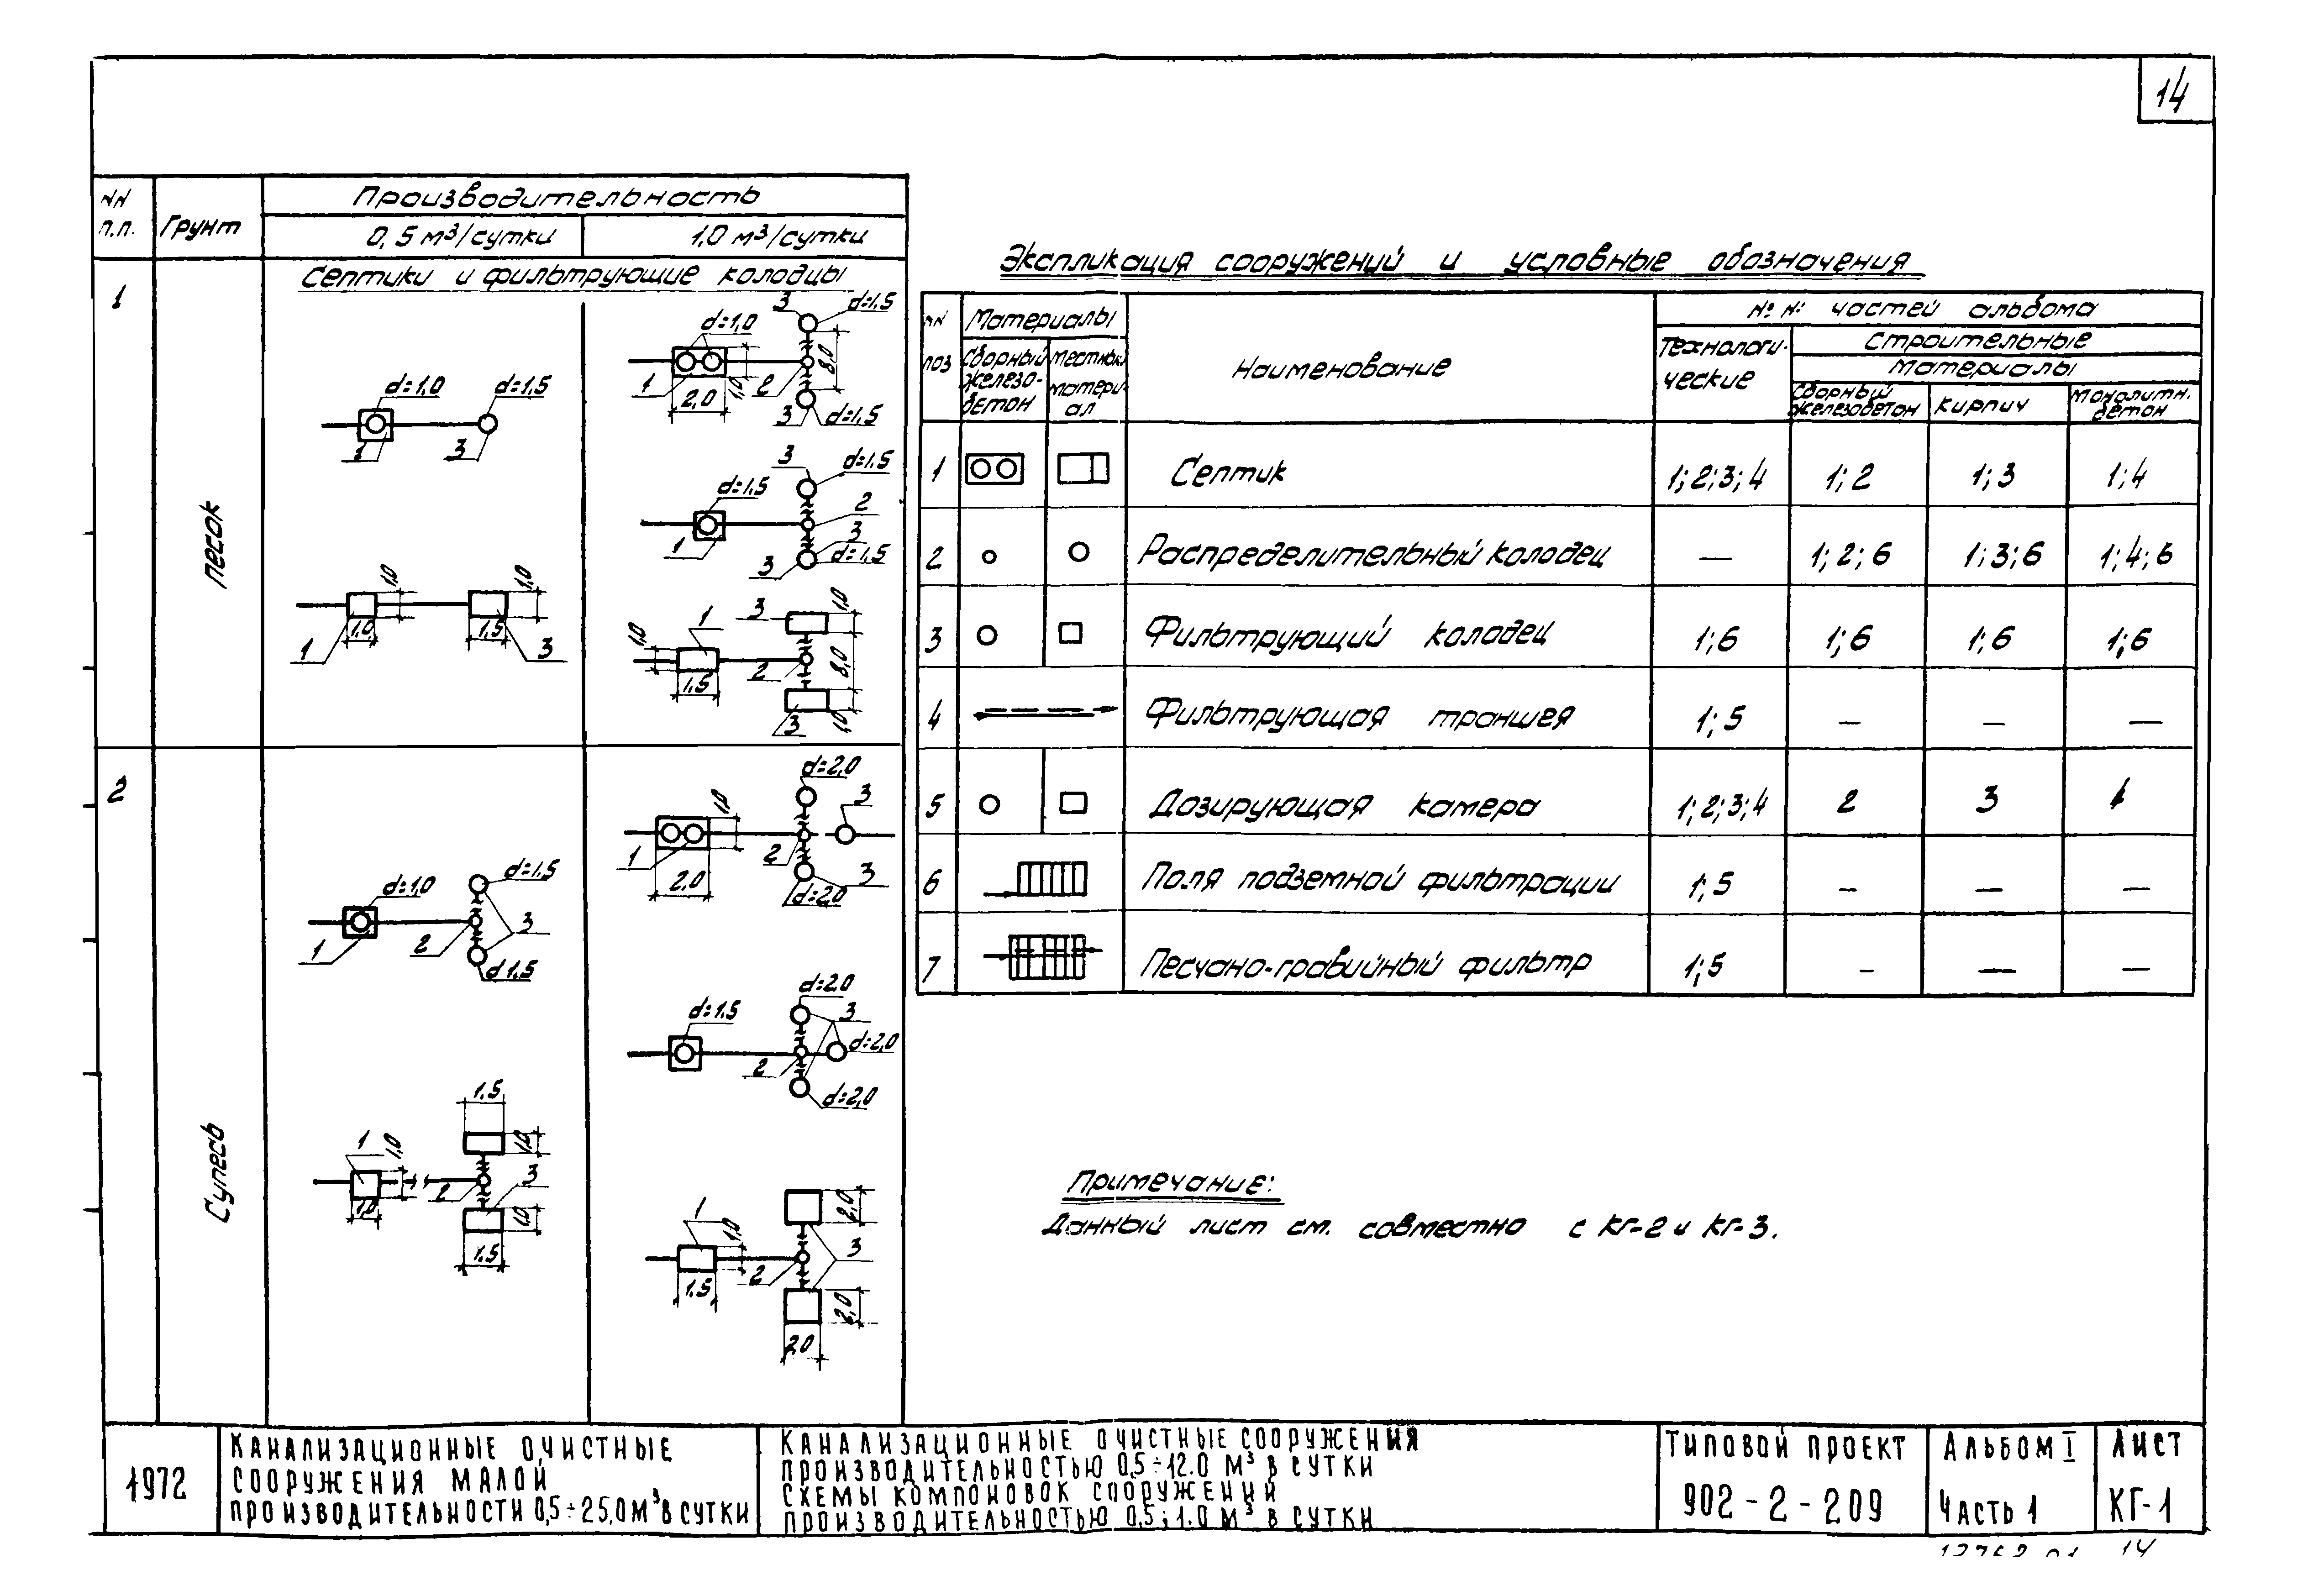 14
NN п.п. Грунт Производительность
0,5 м³/сутки 1,0 м³/сутки
Септики и фильтрующие колодцы
1
песок
d=1,0 d=1,5
1 3
1,0 1,0
1 1,0 1,5 3
3 d=1,5
d=1,0
8,0
1 2,0 1,0 2
3 d=1,5
3 d=1,5
d=1,5
2
1 3
3 d=1,5
3 1,0
1,0 1
2 8,0
1,5
3 1,0
2
Супесь
d=1,5
d=1,0
3
1 2
d 1,5
1,5
1 1,0 1,0
2 3
1,0 1,0
1,5
d=2,0
1,0 3
1 2
2,0 3
d=2,0
d=2,0
d=1,5 3
d=2,0
2
d=2,0
1 1,0 2,0
3
2
1,5 2,0
2,0
Экспликация сооружений и условные обозначения
NN поз Материалы Наименование №№ частей альбома
Сборный железо-бетон Местный матери-ал Технологи-ческие Строительные
Материалы
Сборный железобетон Кирпич Монолитн. бетон
1 Септик 1;2;3;4 1;2 1;3 1;4
2 Распределительный колодец — 1;2;6 1;3;6 1;4;6
3 Фильтрующий колодец 1;6 1;6 1;6 1;6
4 Фильтрующая траншея 1;5 — — —
5 Дозирующая камера 1;2;3;4 2 3
6 Поля подземной фильтрации 1;5 — — —
7 Песчано-гравийный фильтр 1;5 — — —
Примечание:
Данный лист см. совместно с КГ-2 и КГ-3.
1972
Канализационные очистные
сооружения малой
производительности 0,5÷25,0 м³ в сутки
Канализационные очистные сооружения
производительностью 0,5÷12.0 м³ в сутки
Схемы компоновок сооружений
производительностью 0,5; 1.0 м³ в сутки
Типовой проект
902-2-209
Альбом I
Часть 1
Лист
КГ-1
14